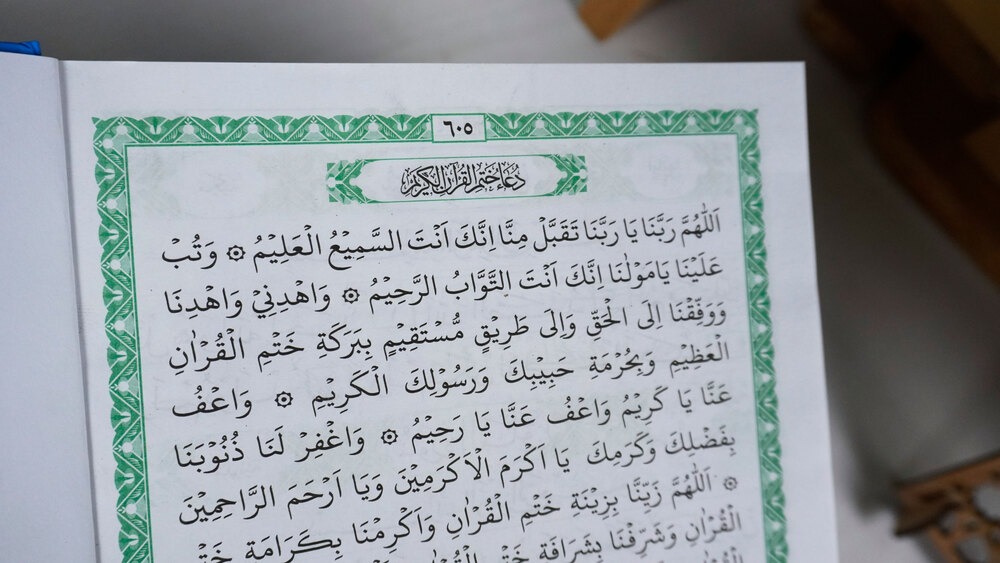 ٦٠٥
دُعَاءُ خَتْمِ الْقُرْآنِ الْكَرِيْمِ
اَللّٰهُمَّ رَبَّنَا يَا رَبَّنَا تَقَبَّلْ مِنَّا اِنَّكَ اَنْتَ السَّمِيْعُ الْعَلِيْمُ ۞ وَتُبْ
عَلَيْنَا يَامَوْلٰنَا اِنَّكَ اَنْتَ التَّوَّابُ الرَّحِيْمُ ۞ وَاهْدِنِيْ وَاهْدِنَا
وَوَفِّقْنَا اِلَى الْحَقِّ وَاِلٰى طَرِيْقٍ مُّسْتَقِيْمٍ بِبَرَكَةِ خَتْمِ الْقُرْاٰنِ
الْعَظِيْمِ وَبِحُرْمَةِ حَبِيْبِكَ وَرَسُوْلِكَ الْكَرِيْمِ ۞ وَاعْفُ
عَنَّا يَا كَرِيْمُ وَاعْفُ عَنَّا يَا رَحِيْمُ ۞ وَاغْفِرْ لَنَا ذُنُوْبَنَا
بِفَضْلِكَ وَكَرَمِكَ يَا اَكْرَمَ الْاَكْرَمِيْنَ وَيَا اَرْحَمَ الرَّاحِمِيْنَ
۞ اَللّٰهُمَّ زَيِّنَّا بِزِيْنَةِ خَتْمِ الْقُرْاٰنِ وَاَكْرِمْنَا بِكَرَامَةِ خَتْمِ
الْقُرْاٰنِ وَشَرِّفْنَا بِشَرَافَةِ خَتْمِ